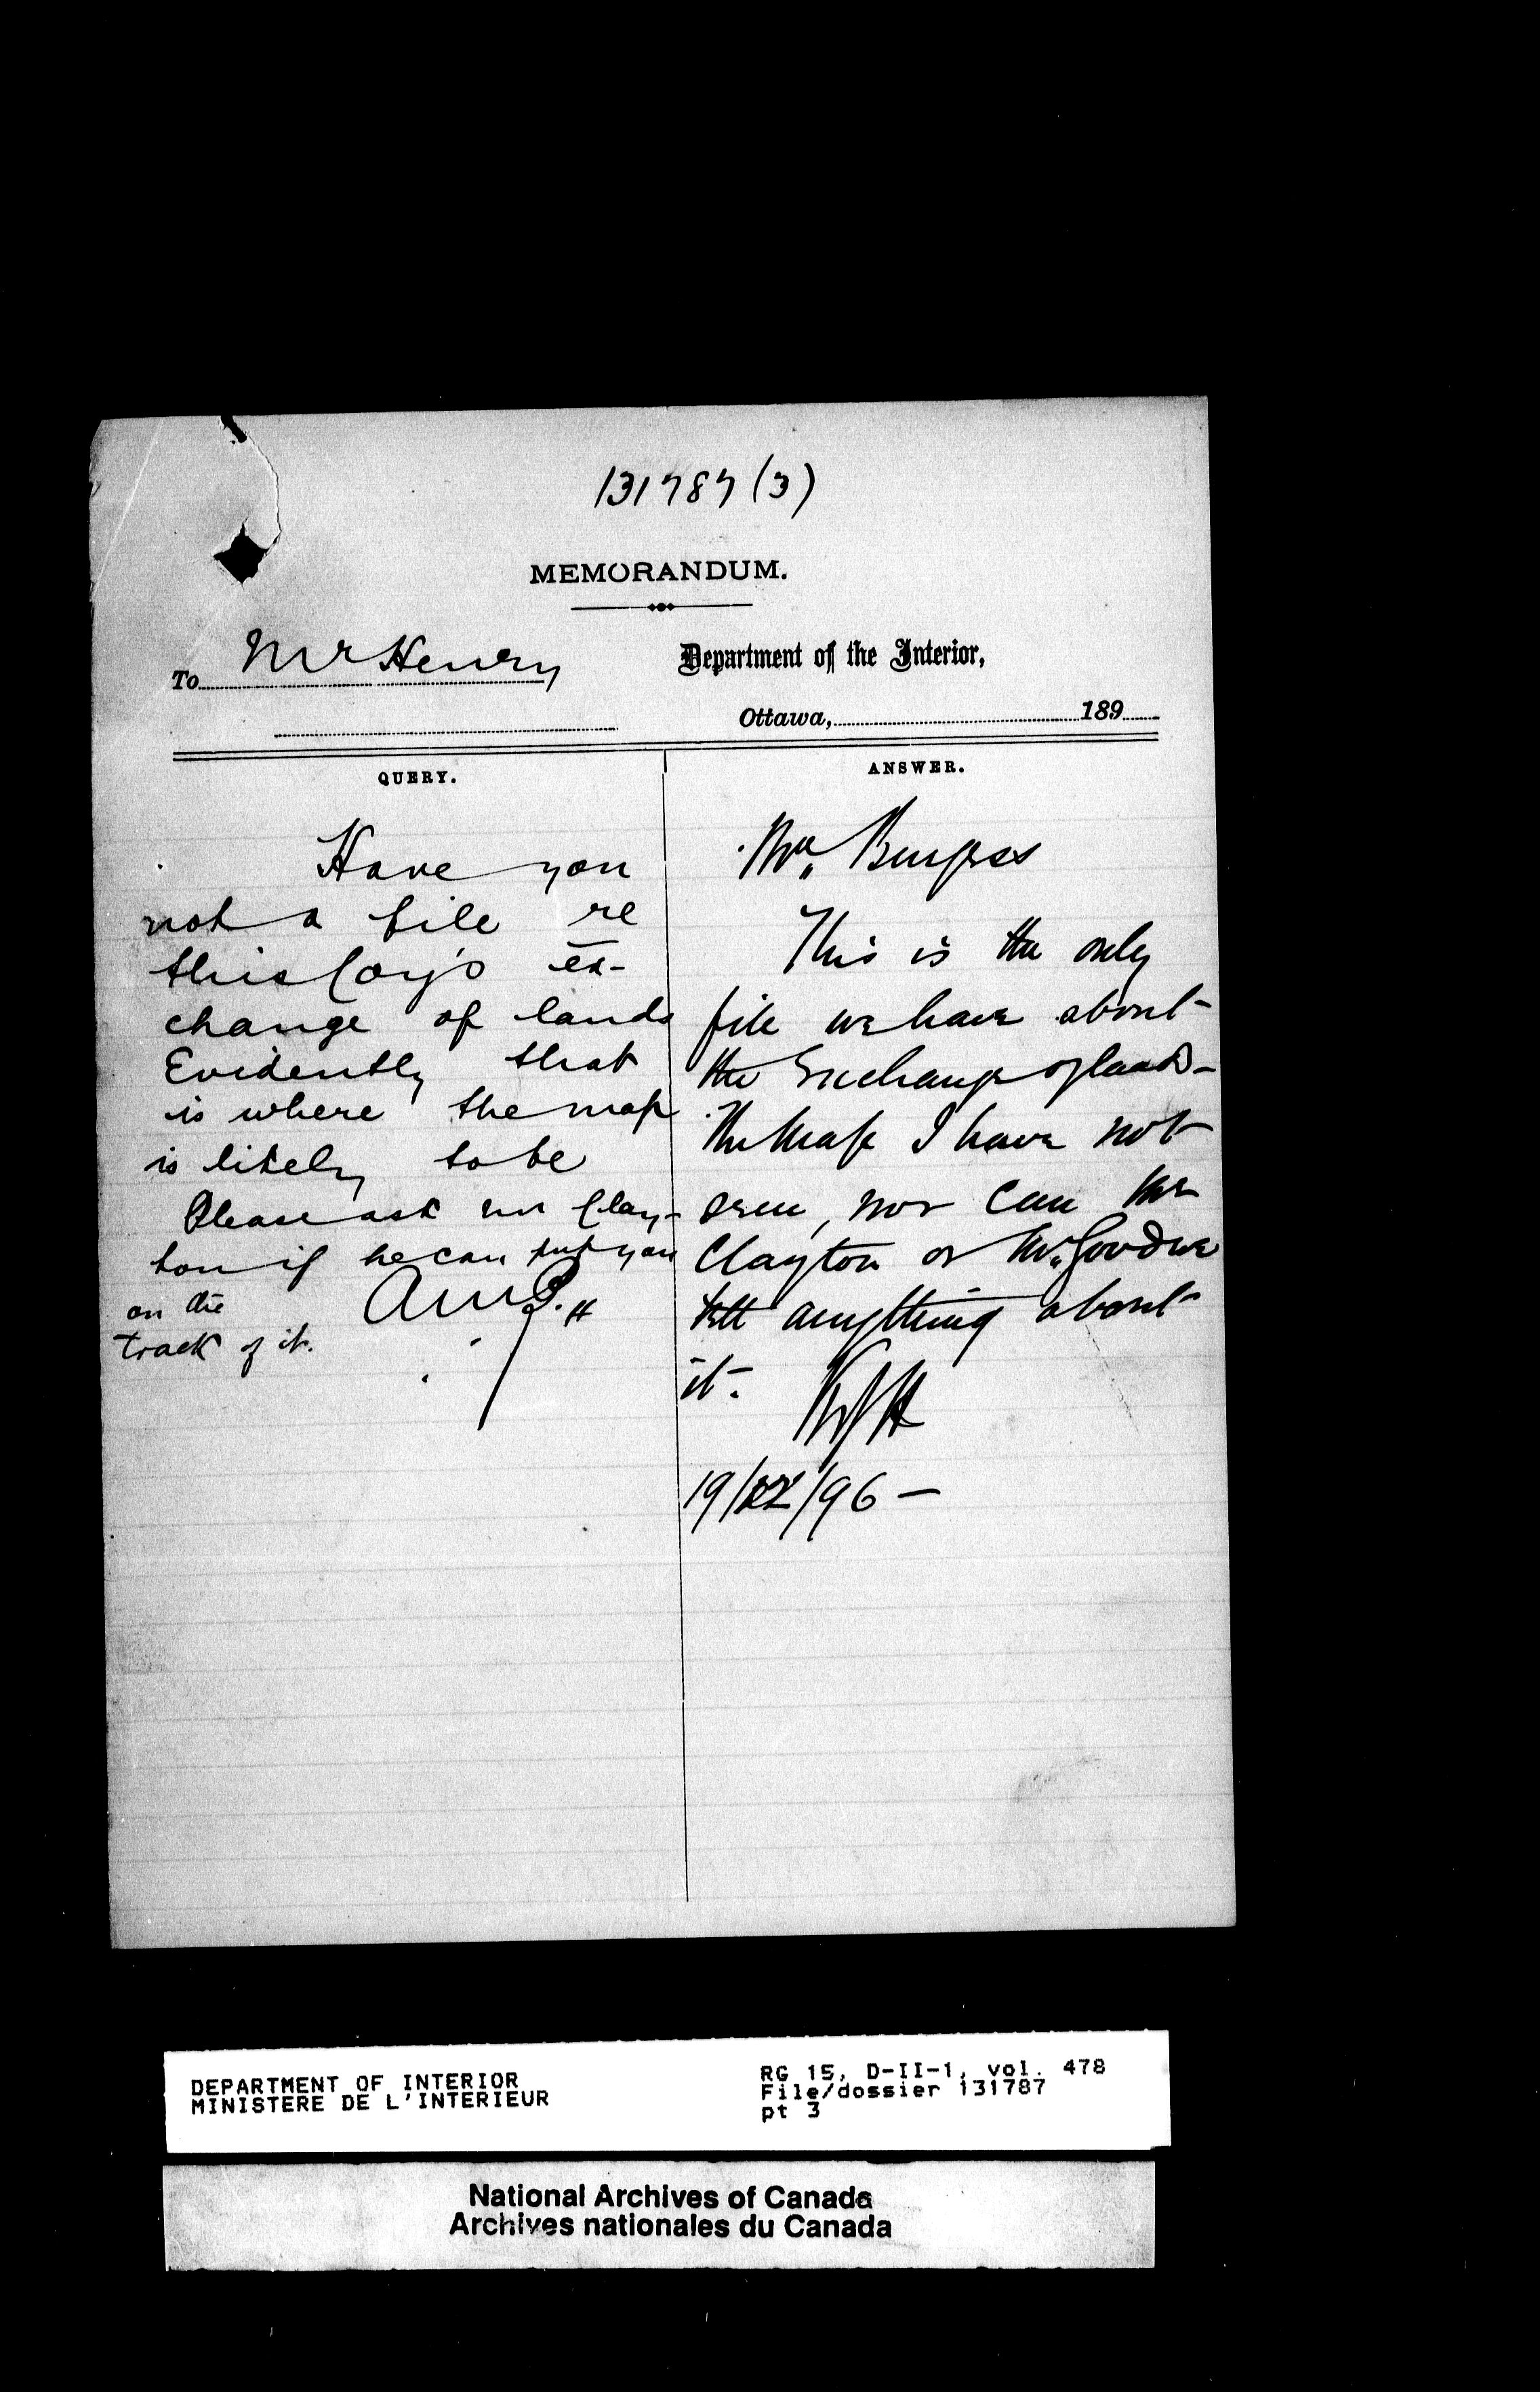 131787 (3)
MEMORANDUM.
To Mr Henry
Department of the Interior,
Ottawa, 189
QUERY.
Have you
not a file re
this Coy's ex-
change of lands
Evidently that
is where the map
is likely to be
Please ask Mr Clay-
ton if he can put you
on the
track of it.
AMB.
ANSWER.
Mr. Burgess
This is the only
file we have about
the Exchange of lands-
The Map I have not
seen, nor can Mr
Clayton or Mr.
tell anything about
it.
19/12/96 —
DEPARTMENT OF INTERIOR
MINISTERE DE L'INTERIEUR
RG 15, D-II-1, vol. 478
File/dossier 131787
pt 3
National Archives of Canada
Archives nationales du Canada